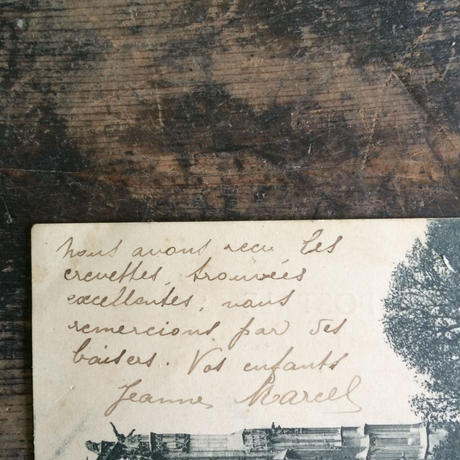 Nous avons recu les
crevettes, trouvées
excellentes, vous
remercions par des
baisers. Vos enfants
Jeanne Marcel